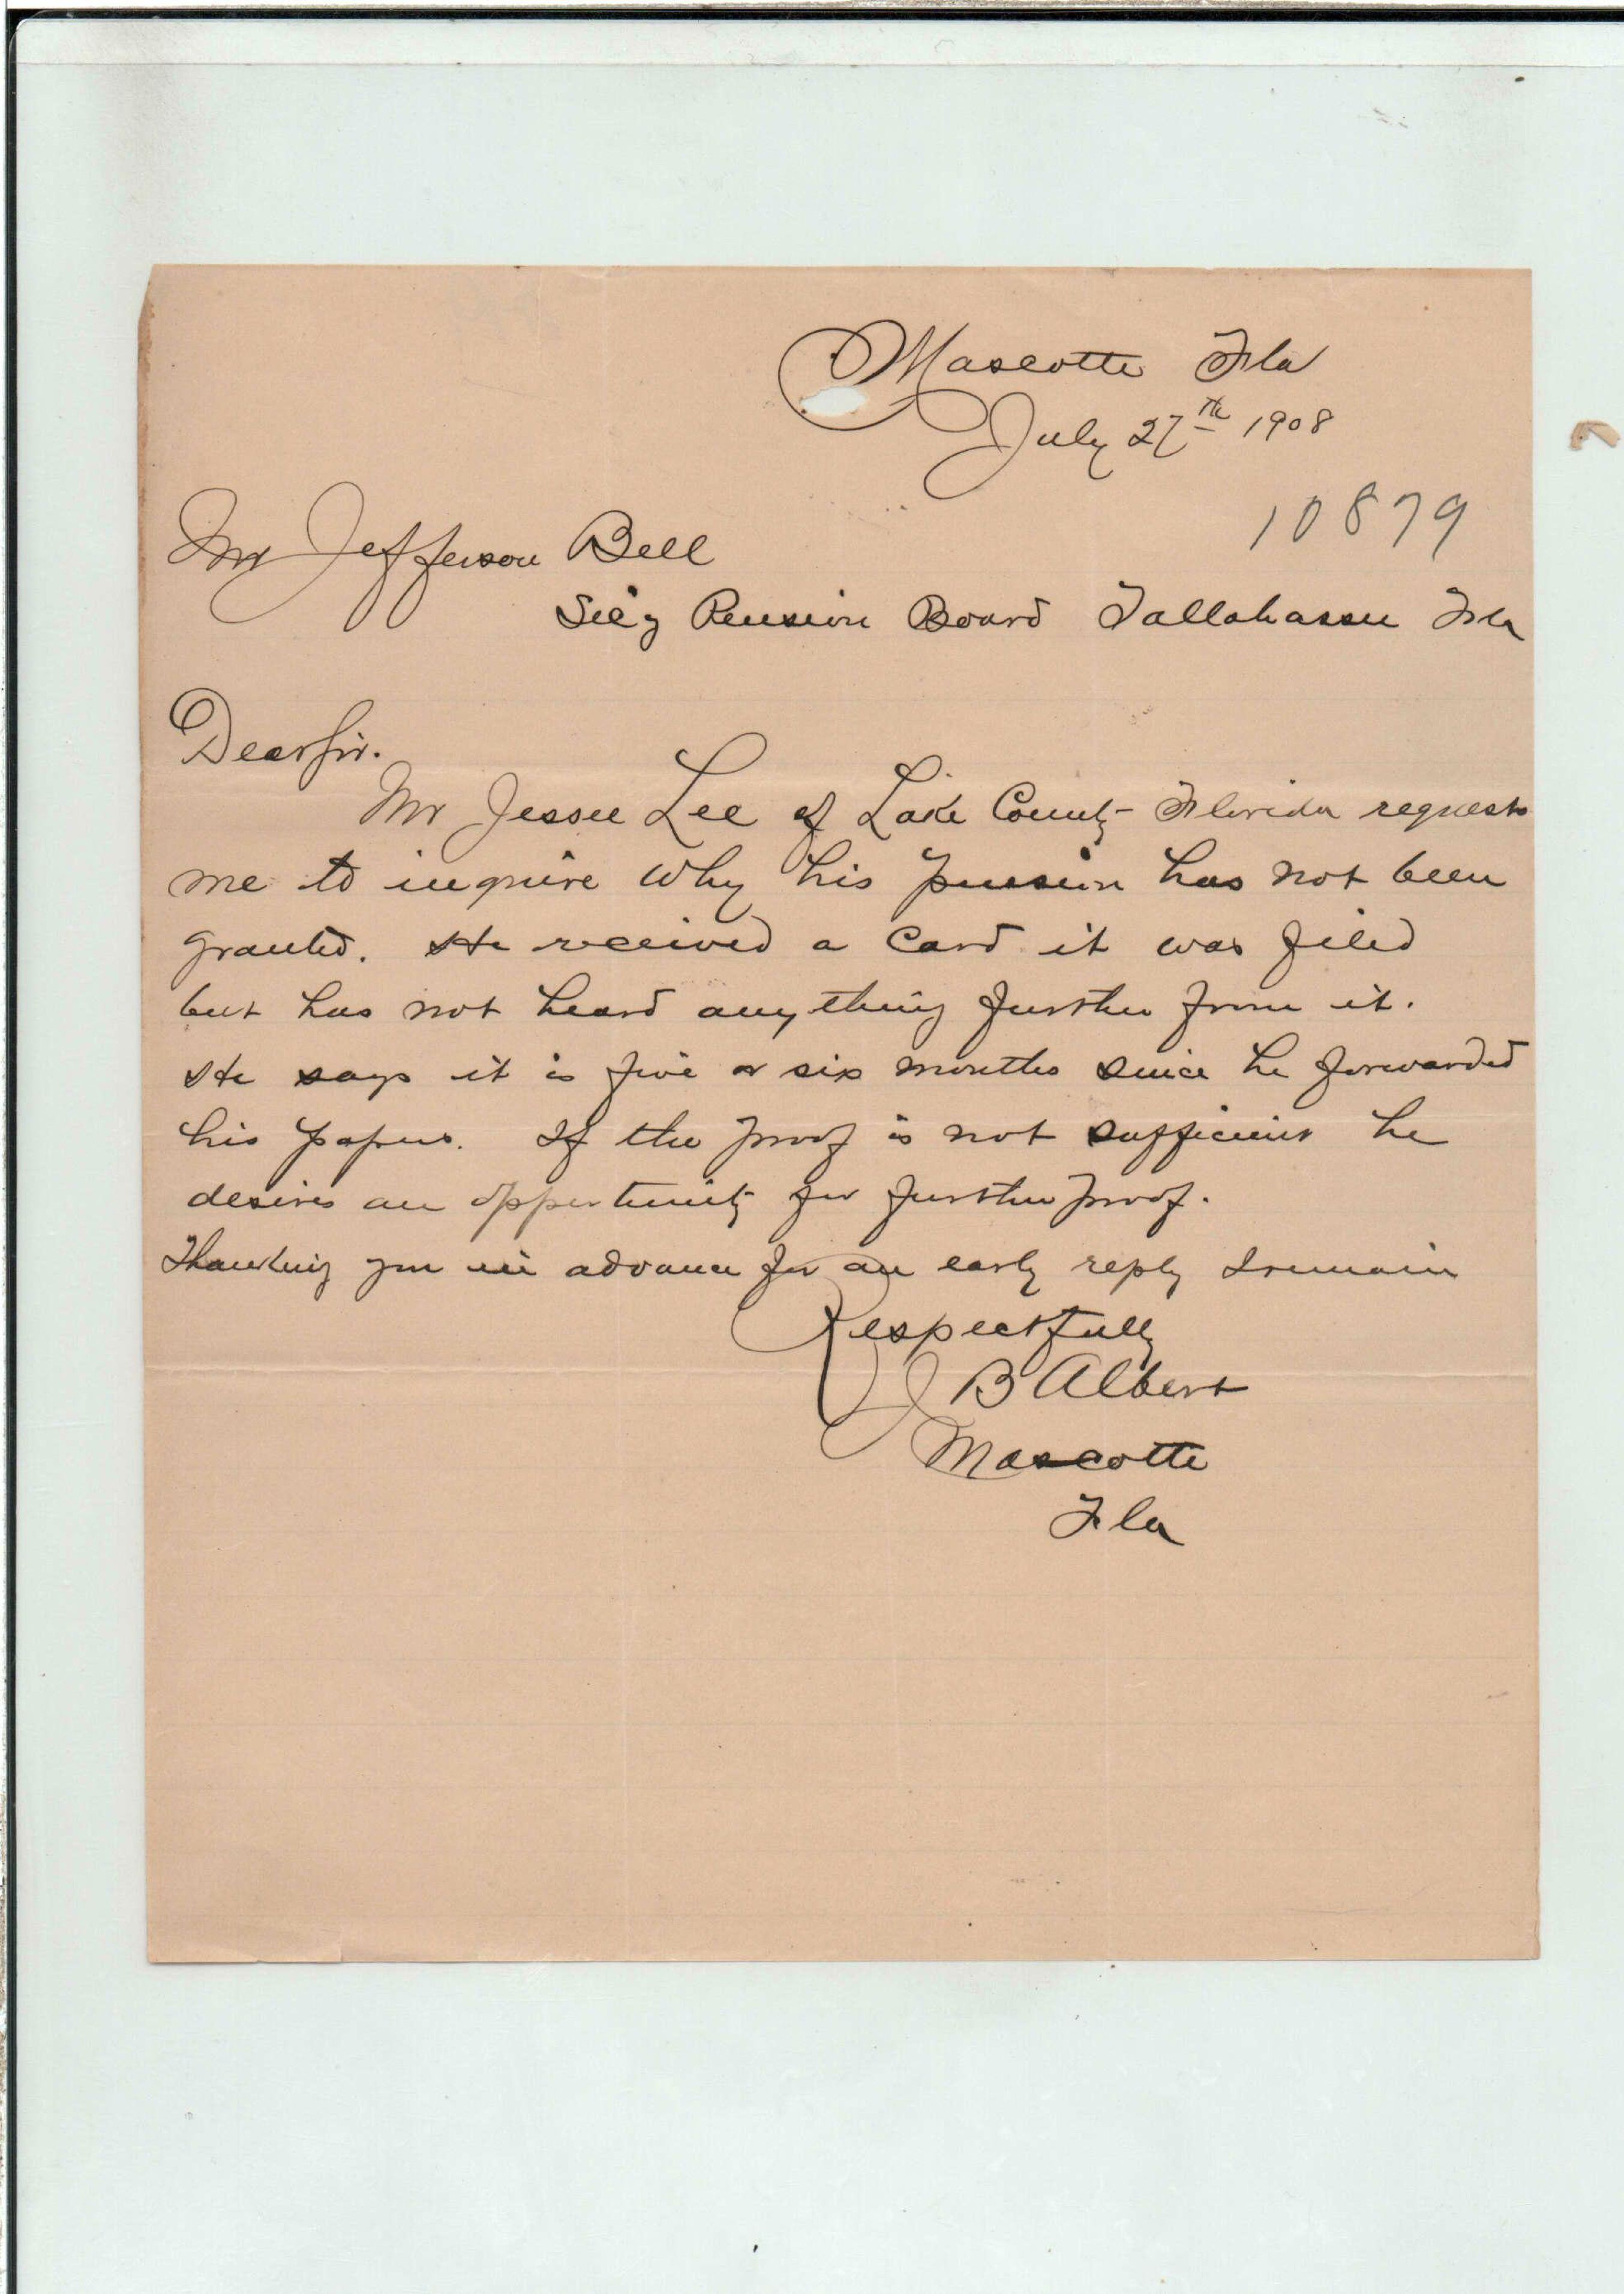 Mascotte Fla
July 27th 1908
10879
Mr Jefferson Bell
Sec'y Pension Board Tallahassee Fla
Dear Sir.
Mr Jessee Lee of Lake County Florida requests
me to inquire why his pension has not been
granted. He received a card it was filed
but has not heard anything further from it.
He says it is five or six months since he forwarded
his papers. If the proof is not sufficient he
desires an opportunity for further proof.
Thanking you in advance for an early reply I remain
Respectfully
J B Albert
Mascotte
Fla